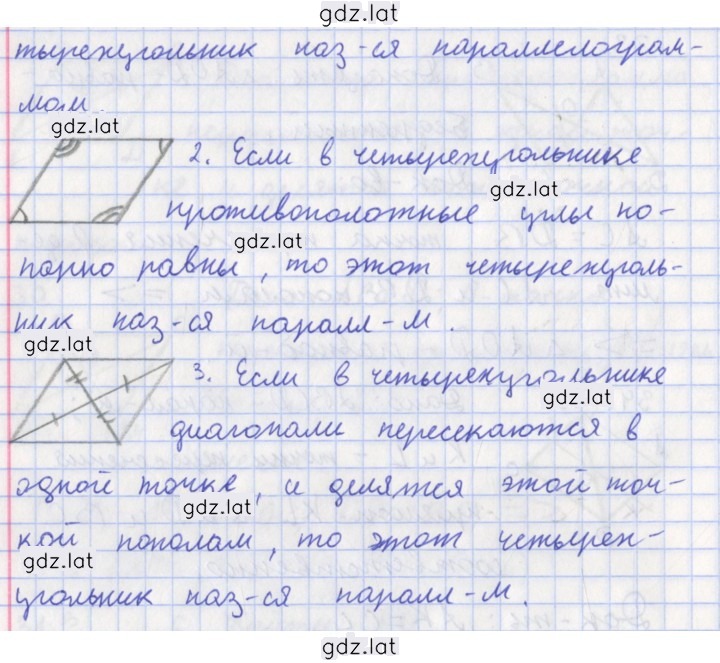 gdz.lat
тырехугольник наз-ся параллелограм-
мом.
gdz.lat
2. Если в четырехугольнике
gdz.lat
противоположные углы по-
gdz.lat
парно равны, то этот четырехуголь-
ник наз-ся паралл-м.
gdz.lat
3. Если в четырехугольнике
gdz.lat
диагонали пересекаются в
одной точке, и делятся этой точ-
gdz.lat
кой пополам, то этот четырех-
gdz.lat
угольник наз-ся паралл-м.
gdz.lat